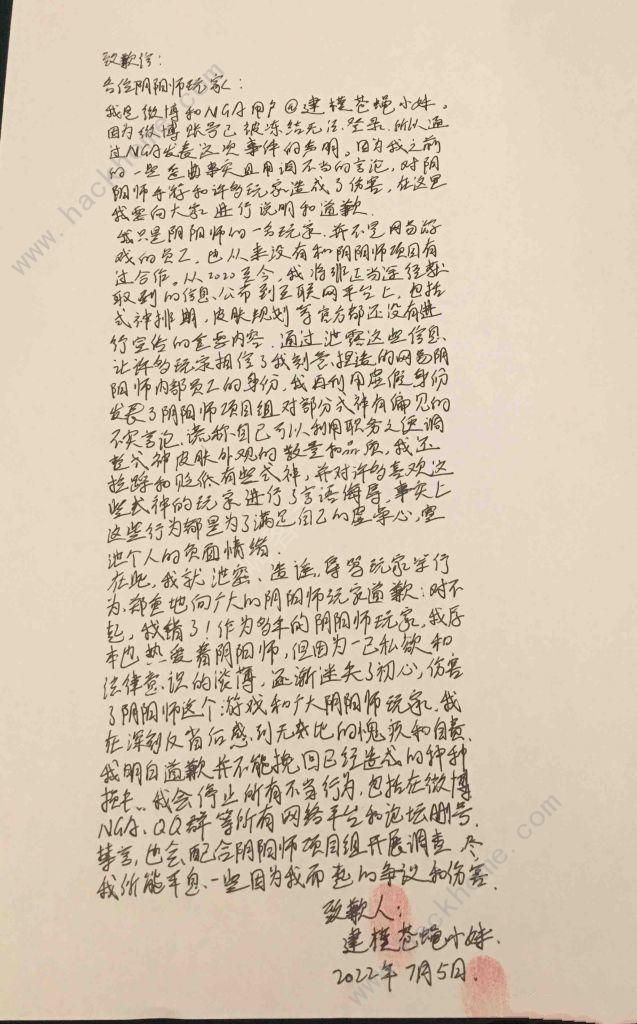 致歉信：
各位阴阳师玩家：
我是微博和NGA用户@建模苍蝇小妹。
因为微博账号已被冻结无法登录，所以通
过NGA发表这次事件的声明。因为我之前
的一些歪曲事实且用词不当的言论，对阴
阳师手游和许多玩家造成了伤害，在这里
我要向大家进行说明和道歉.
我只是阴阳师的一名玩家，并不是网易游
戏的员工，也从来没有和阴阳师项目有
过合作。从2020至今，我将非正当途径获
取到的信息，公布到互联网平台上，包括
式神排期，皮肤规划等官方都还没有进
行宣传的重要内容.通过泄露这些信息，
让许多玩家相信了我刻意捏造的网易阴
阳师内部员工的身份，我再利用虚假身份
发表了阴阳师项目组对部分式神有偏见的
不实言论.谎称自己可以利用职务之便调
整式神皮肤外观的数量和品质，我还
拉踩和贬低有些式神，并对许多喜欢这
些式神的玩家进行了言语侮辱，事实上
这些行为都是为了满足自己的虚荣心，宣
泄个人的负面情绪.
在此，我就泄密、造谣、辱骂玩家等行
为，郑重地向广大的阴阳师玩家道歉：对不
起，我错了！作为多年的阴阳师玩家，我原
本也热爱着阴阳师，但因为一己私欲和
法律意识的淡薄，逐渐迷失了初心，伤害
了阴阳师这个游戏和广大阴阳师玩家.我
在深刻反省后感到无比的愧疚和自责.
我明白道歉并不能挽回已经造成的种种
损失..我会停止所有不当行为，包括在微博
NGA、QQ群等所有网络平台和论坛删号、
禁言，也会配合阴阳师项目组开展调查.尽
我所能平息一些因为我而起的争议和伤害.
致歉人：
建模苍蝇小妹.
2022年7月5日.
www.hackhome.com
www.hackhome.com